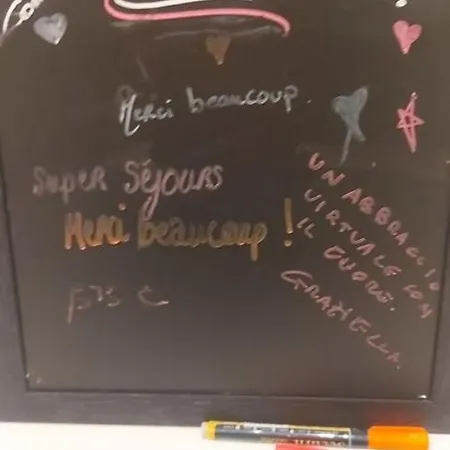 Merci beaucoup.
Super Séjours
Merci beaucoup !
UN ABBRACCIO
VIRTUALE CON
IL CUORE.
GRAZIELLA.